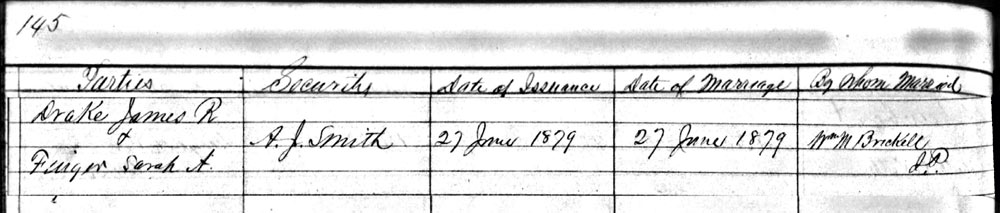 145
Parties Security Date of Issuance Date of Marriage By Whom Married
Drake James R
& A. J. Smith 27 June 1879 27 June 1879 Wm M Brickell
Finger Sarah A. J.P.